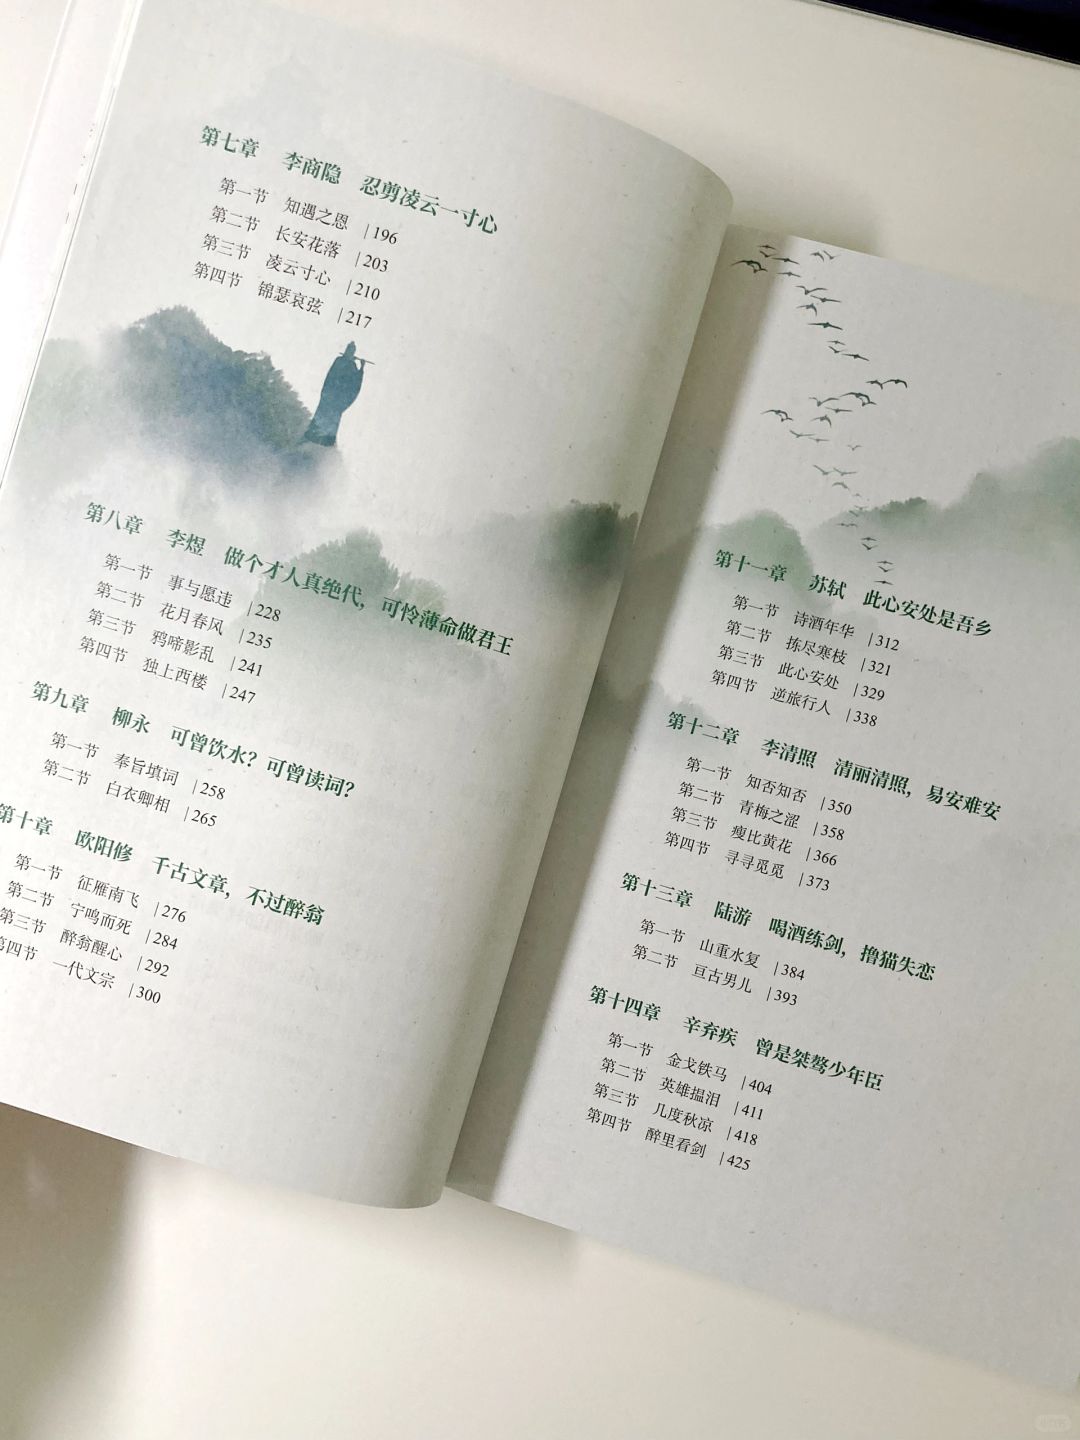 第七章 李商隐 忍剪凌云一寸心
第一节 知遇之恩 | 196
第二节 长安花落 | 203
第三节 凌云寸心 | 210
第四节 锦瑟哀弦 | 217
第八章 李煜 做个才人真绝代，可怜薄命做君王
第一节 事与愿违 | 228
第二节 花月春风 | 235
第三节 鸦啼影乱 | 241
第四节 独上西楼 | 247
第九章 柳永 可曾饮水？可曾读词？
第一节 奉旨填词 | 258
第二节 白衣卿相 | 265
第十章 欧阳修 千古文章，不过醉翁
第一节 征雁南飞 | 276
第二节 宁鸣而死 | 284
第三节 醉翁醒心 | 292
第四节 一代文宗 | 300
第十一章 苏轼 此心安处是吾乡
第一节 诗酒年华 | 312
第二节 拣尽寒枝 | 321
第三节 此心安处 | 329
第四节 逆旅行人 | 338
第十二章 李清照 清丽清照，易安难安
第一节 知否知否 | 350
第二节 青梅之涩 | 358
第三节 瘦比黄花 | 366
第四节 寻寻觅觅 | 373
第十三章 陆游 喝酒练剑，撸猫失恋
第一节 山重水复 | 384
第二节 亘古男儿 | 393
第十四章 辛弃疾 曾是桀骜少年臣
第一节 金戈铁马 | 404
第二节 英雄揾泪 | 411
第三节 几度秋凉 | 418
第四节 醉里看剑 | 425